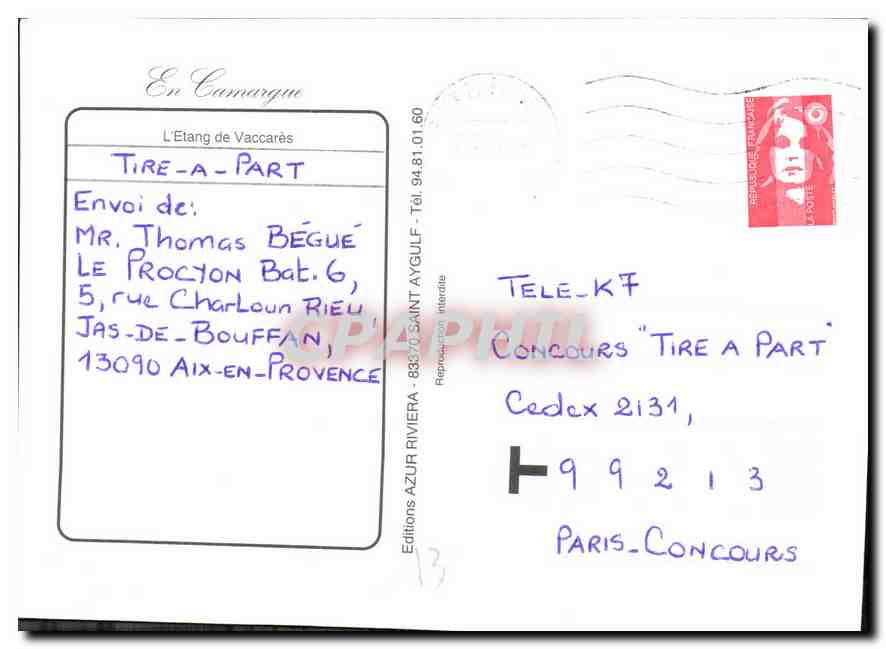 En Camargue
L'Etang de Vaccarès
TIRE-A-PART
Envoi de:
MR. Thomas BÉGUÉ
LE PROCYON Bat. 6,
5, rue CHARLOUN RIEU,
JAS-DE-BOUFFAN,
13090 AIX-EN-PROVENCE
Editions AZUR RIVIERA - 83370 SAINT AYGULF - Tél. 94.81.01.60
Reproduction interdite
RÉPUBLIQUE FRANÇAISE
LA POSTE
TELE-K7
CONCOURS "TIRE A PART"
Cedex 2131,
T 99213
PARIS-CONCOURS
13
CPAPHIL